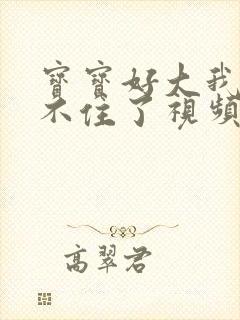 寶寶好大我
不住了視頻
高翠君